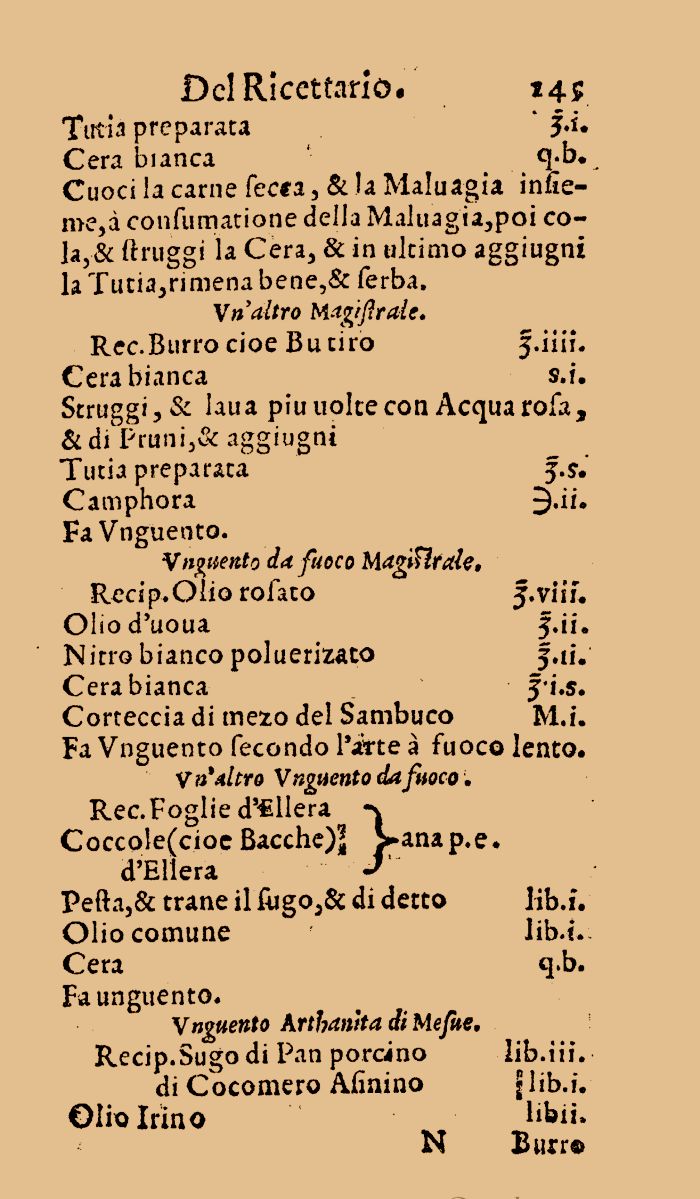 Del Ricettario. 245
Tutia preparata ℥.i.
Cera bianca q.b.
Cuoci la carne ſecca, & la Maluagia inſie-
me,à conſumatione della Maluagia,poi co-
la,& ſtruggi la Cera, & in ultimo aggiugni
la Tutia,rimena bene,& ſerba.
Vn'altro Magiſtrale.
Rec.Burro cioe Butiro ℥.iiii.
Cera bianca s.i.
Struggi, & laua piu uolte con Acqua roſa,
& di Pruni,& aggiugni
Tutia preparata ℥.s.
Camphora ℈.ii.
Fa Vnguento.
Vnguento da fuoco Magiſtrale.
Recip.Olio roſato ℥.viii.
Olio d'uoua ℥.ii.
Nitro bianco poluerizato ℥.ii.
Cera bianca ℥.i.s.
Corteccia di mezo del Sambuco M.i.
Fa Vnguento ſecondo l'arte à fuoco lento.
Vn'altro Vnguento da fuoco.
Rec.Foglie d'Ellera
Coccole(cioe Bacche) } ana p.e.
d'Ellera
Peſta,& trane il ſugo,& di detto lib.i.
Olio comune lib.i.
Cera q.b.
Fa unguento.
Vnguento Arthanita di Meſue.
Recip.Sugo di Pan porcino lib.iii.
di Cocomero Aſinino lib.i.
Olio Irino libii.
N Burro